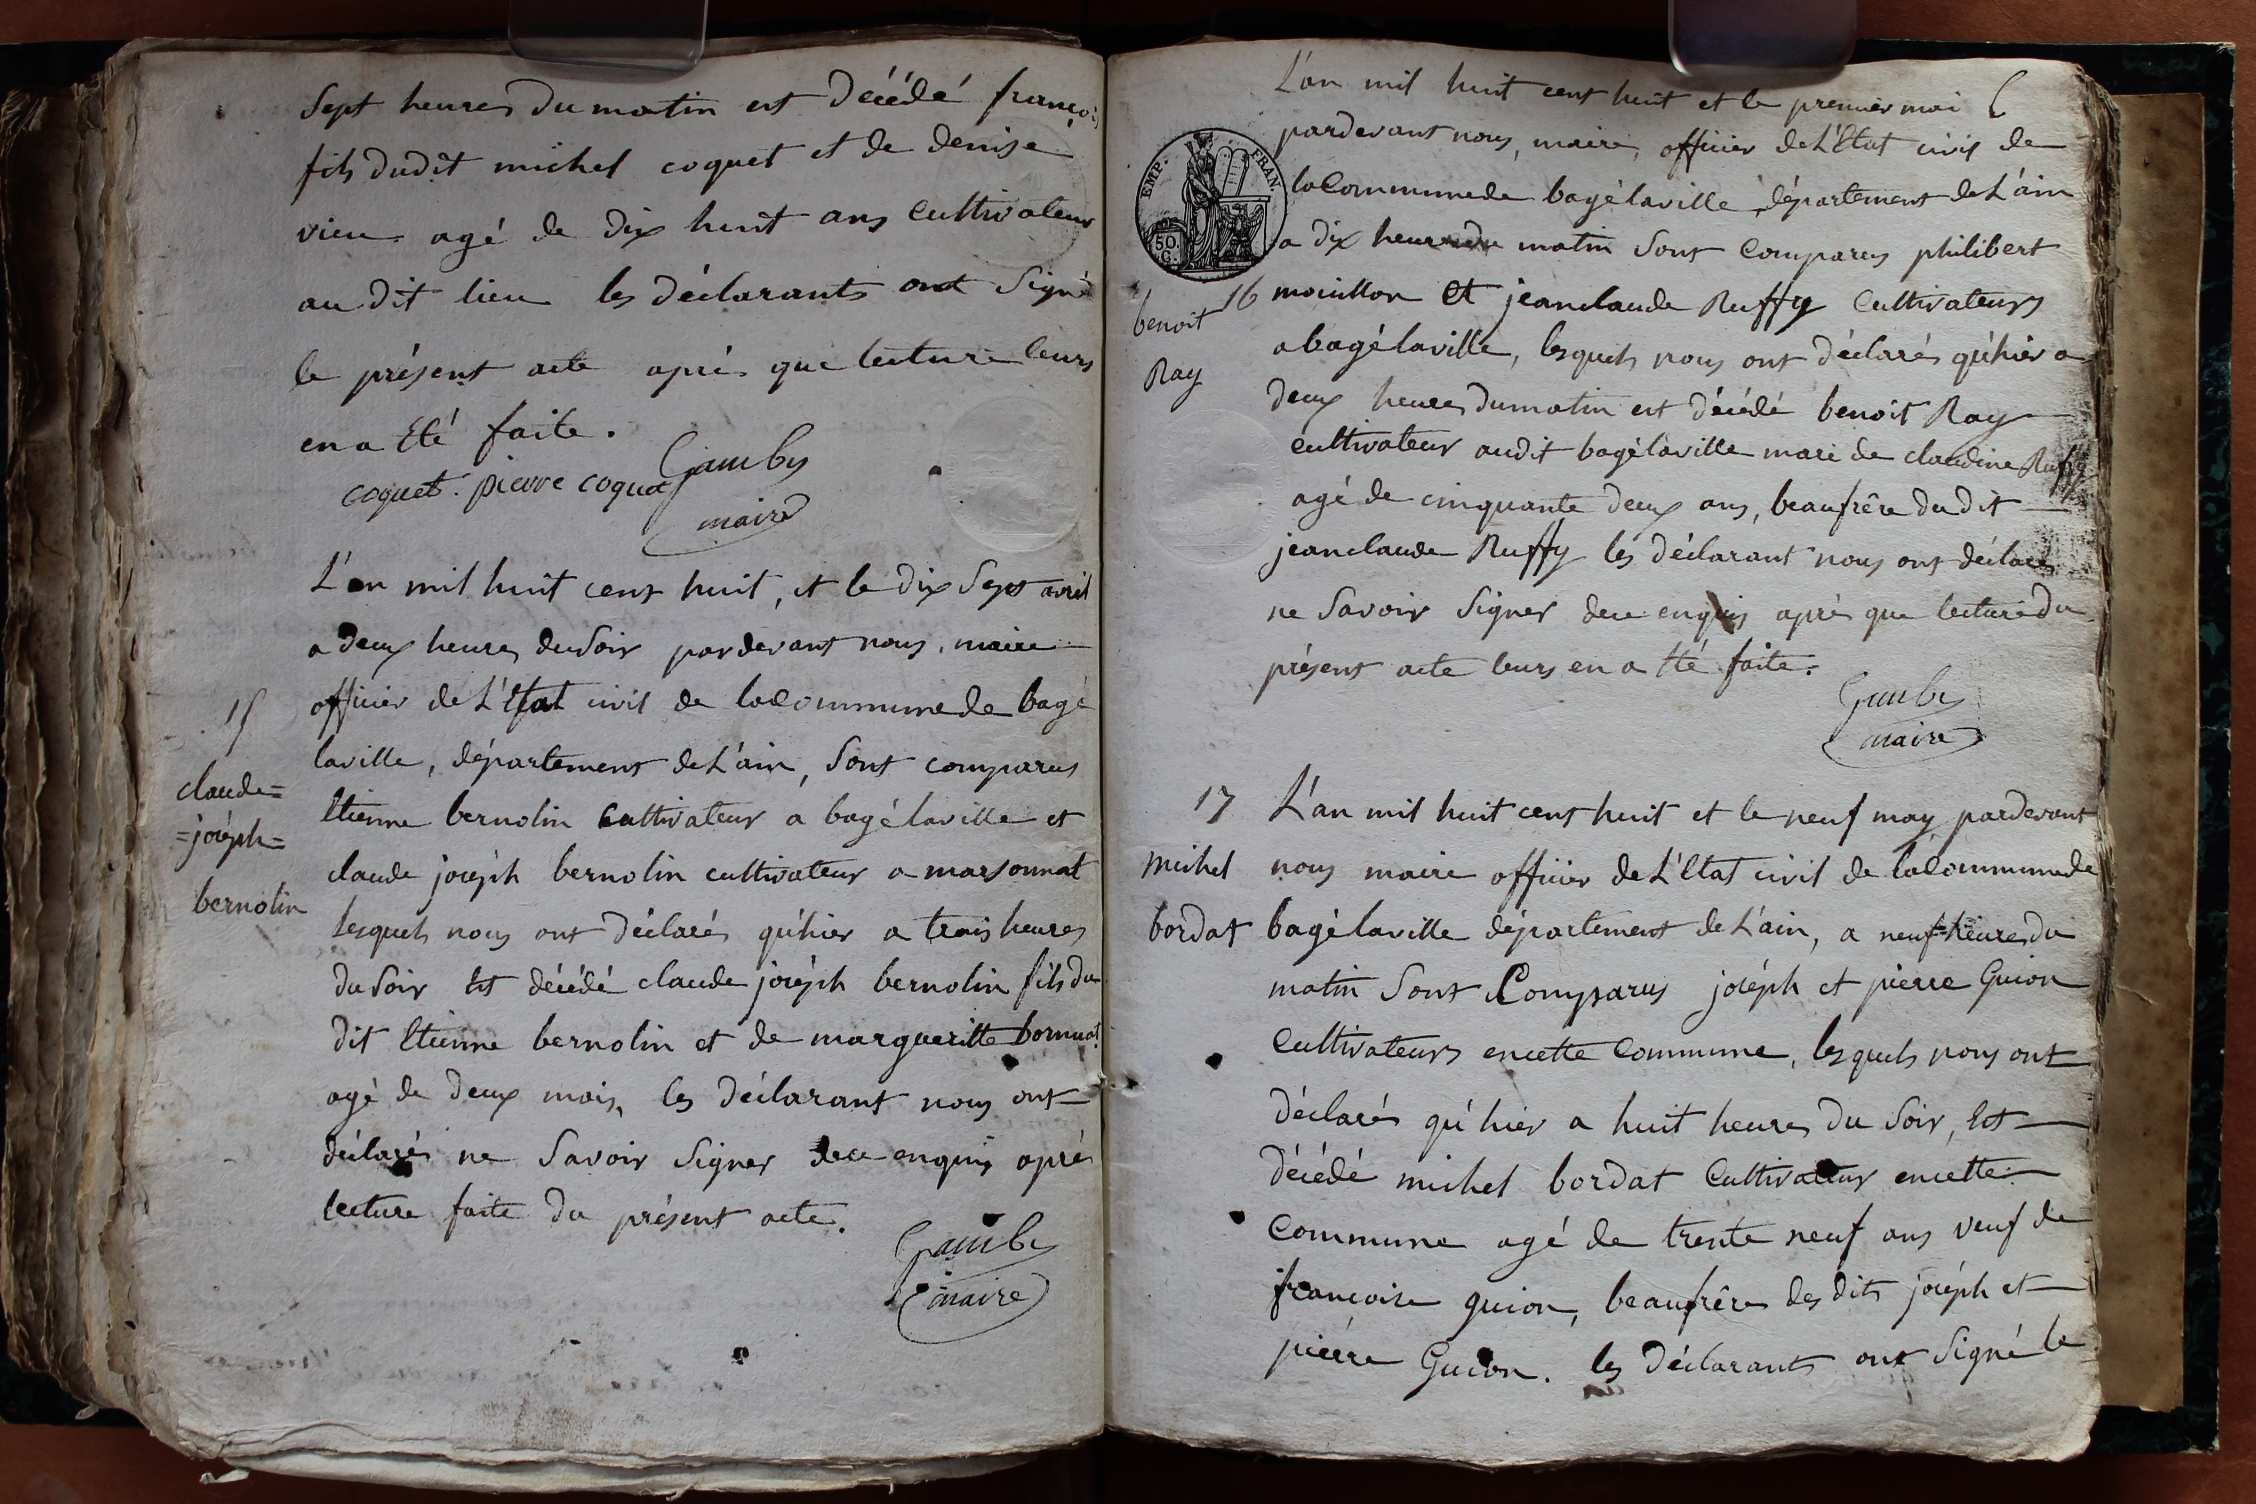 Sept heures du matin est décédé françois
fils dudit michel coquet et de denise
vieu agé de dix huit ans Cultivateur
au dit lieu les déclarants ont Signé
le présent acte après que lecture leurs
en a Eté faite.
coquet. pierre coquet Gamby
maire
L'an mil huit cent huit, et le dix Sept avril
a deux heures du Soir pardevant nous, maire
officier de L'Etat civil de la Commune de bagé
15
laville, département de L'ain, Sont comparus
claude=
Etienne bernolin Cultivateur a bagélaville et
=joséph=
claude joséph bernolin cultivateur a marsonnat
bernolin
lesquels nous ont déclarés qu'hier a trois heures
du Soir Est décédé claude joséph bernolin fils du
dit Etienne bernolin et de margueritte
agé de deux mois, les déclarant nous ont
déclarés ne Savoir Signer de ce enquis après
lecture faite du présent acte.
Gamby
maire
L'an mil huit cent huit et le premier mai
pardevant nous, maire, officier de L'Etat civil de
EMP. FRAN.
la Commune de bagélaville, département de L'ain
50. C.
a dix heures du matin Sont Comparus philibert
16
benoit
mouillon et jeanclaude Ruffy Cultivateurs
a bagélaville, lesquels nous ont déclarés qu'hier a
Ray
deux heures du matin est décédé benoit Ray
cultivateur audit bagélaville mari de claudine Ruffy
agé de cinquante deux ans, beaufrêre du dit
jeanclaude Ruffy les déclarant nous ont déclarés
ne Savoir Signer de ce enquis après que lecture du
présent acte leurs en a Eté faite.
Gamby
maire
17 L'an mil huit cent huit et le neuf may, pardevant
michel nous maire officier de L'Etat civil de la Commune de
bordat bagélaville département de L'ain, a neuf heures du
matin Sont Comparus joséph et pierre Guion
Cultivateurs en cette Commune, lesquels nous ont
déclarés qu'hier a huit heures du Soir, Est
décédé michel bordat Cultivateur en cette
Commune agé de trente neuf ans veuf de
françoise guion, beaufrêre des dits joséph et
pierre Guion. les déclarants ont Signé le